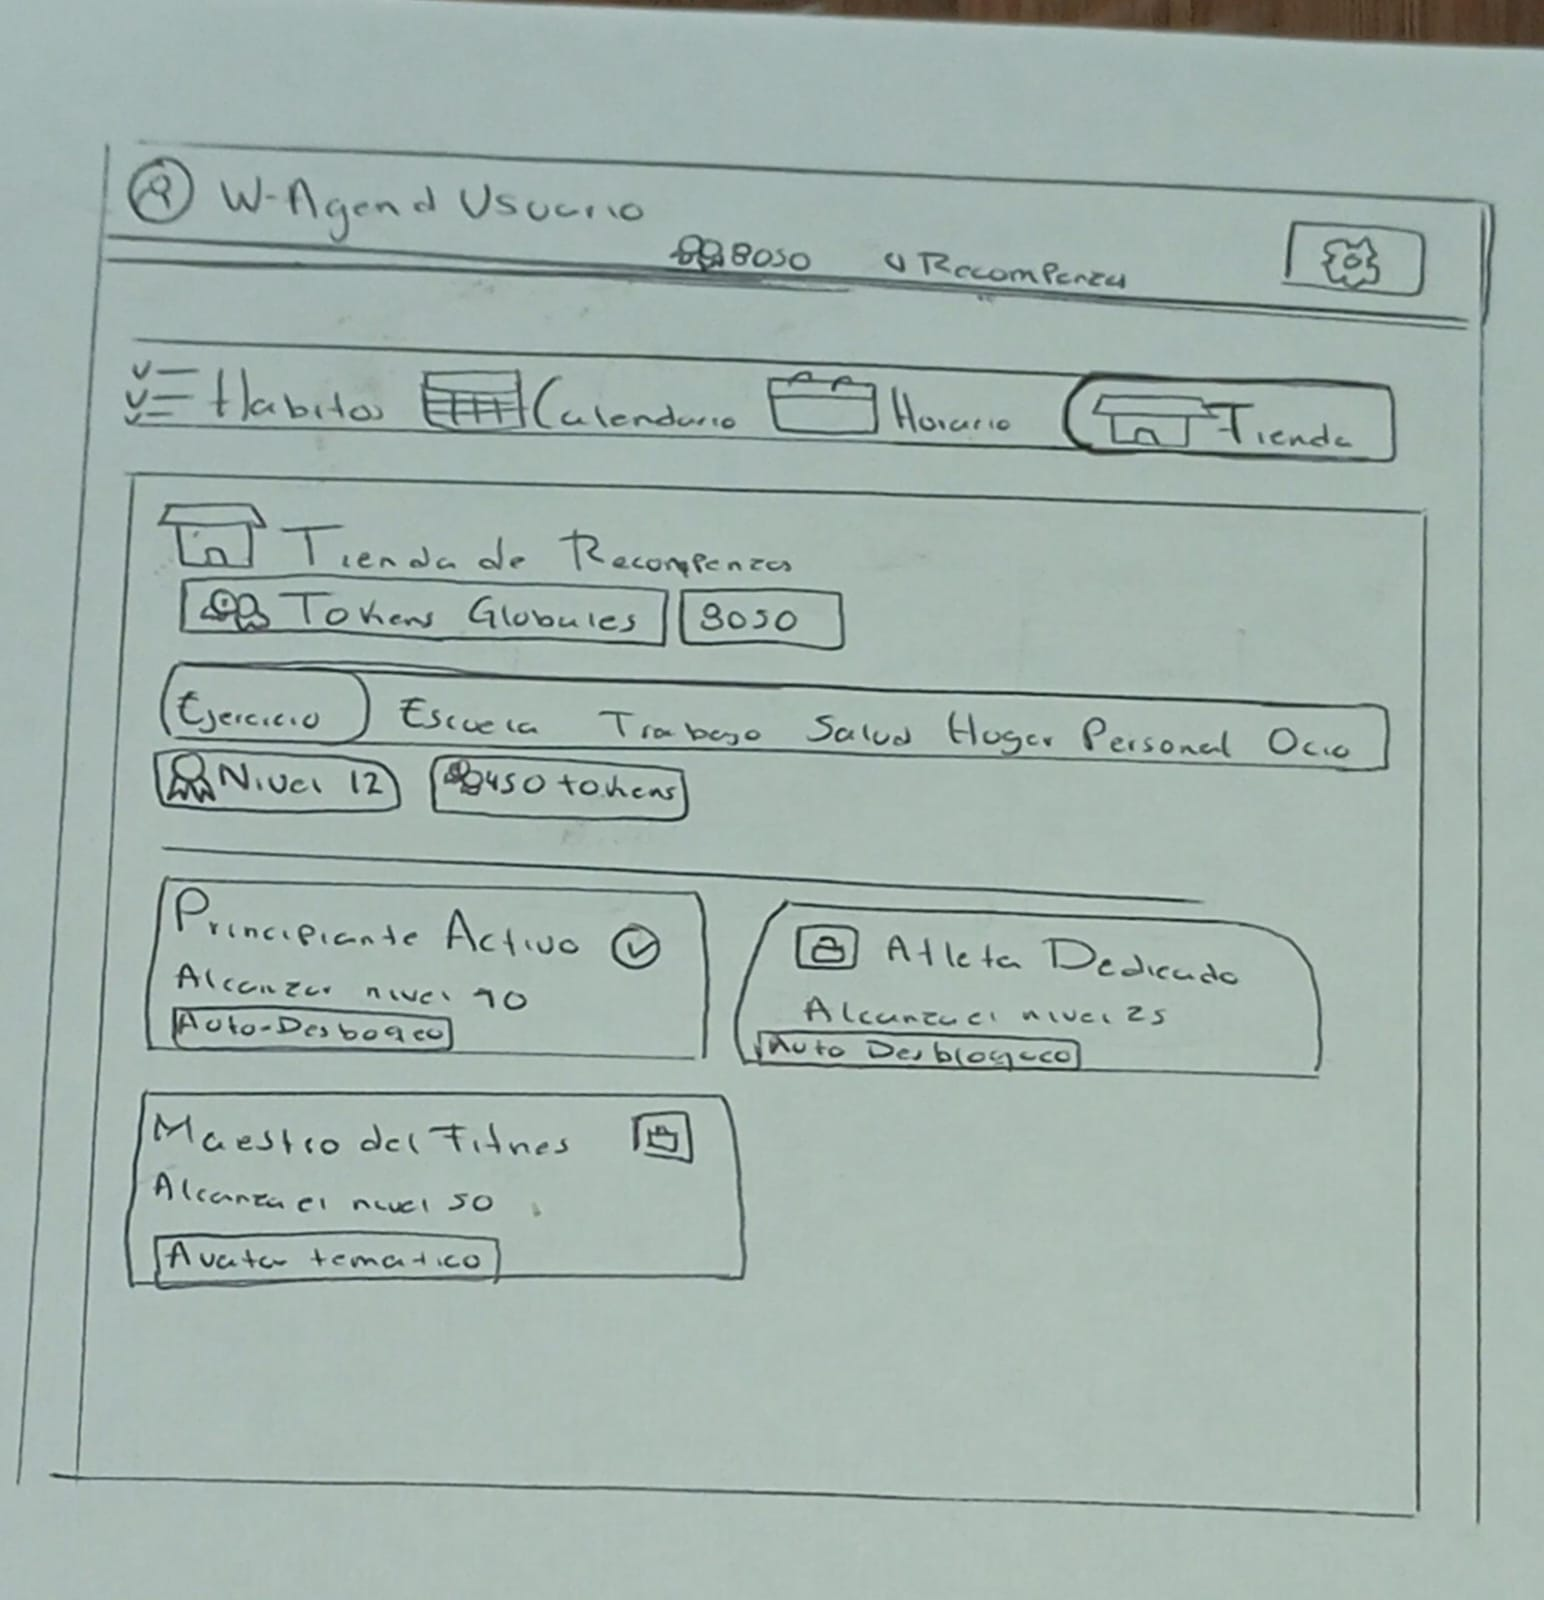 W-Agend Usuario
8050 Recompenza
Habitos Calendario Horario Tienda
Tienda de Recompenzas
Tokens Globales 8050
Ejercicio Escuela Trabajo Salud Hogar Personal Ocio
Nivel 12 450 tokens
Principiante Activo
Alcanzar nivel 10
Auto-Desboqeo
Atleta Dedicado
Alcanza el nivel 25
Auto Desbloqueo
Maestro del Fitnes
Alcanza el nivel 50
Avatar tematico